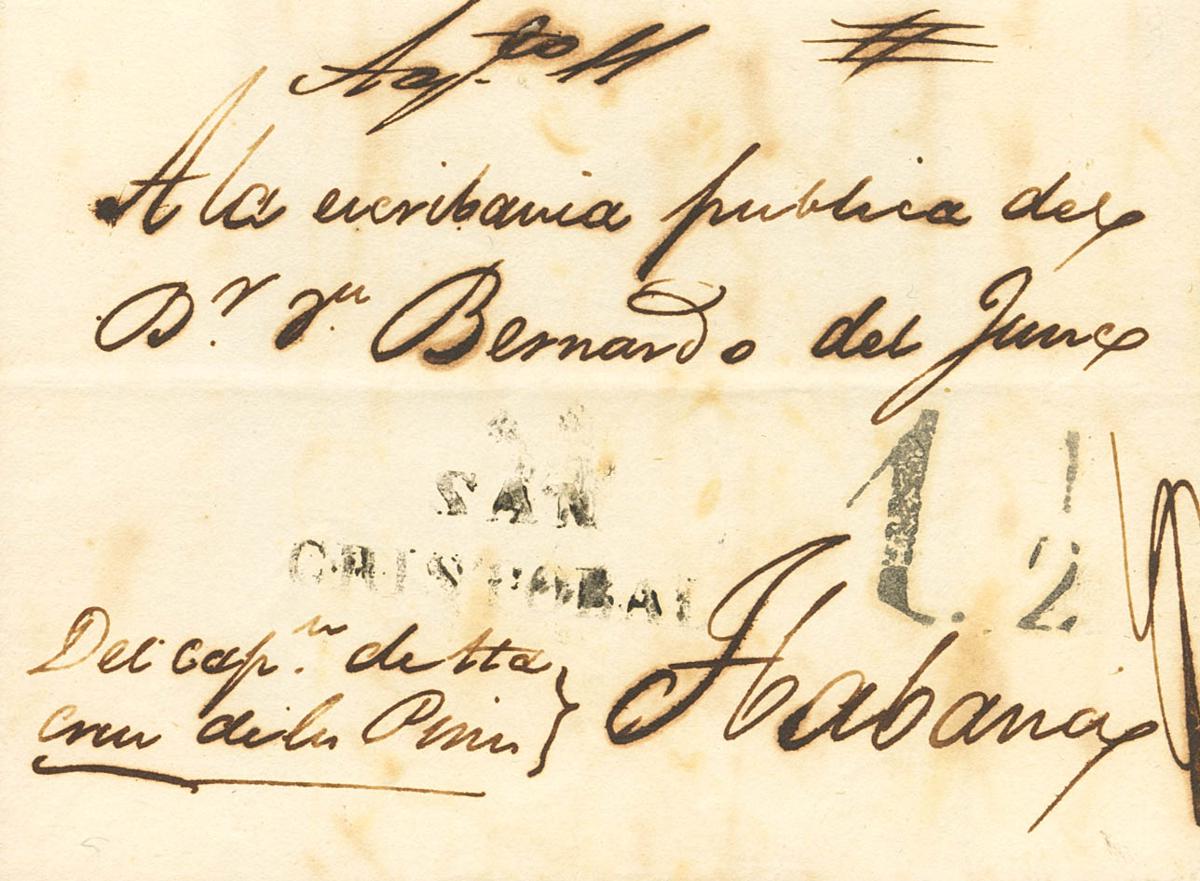 Ag.to 11
A la escribania publica del
Dr. Dn Bernardo del Junco
SAN
CRISTOBAL
1. 1/2
Del cap.n de Sta
Cruz de los Pinos
Habana